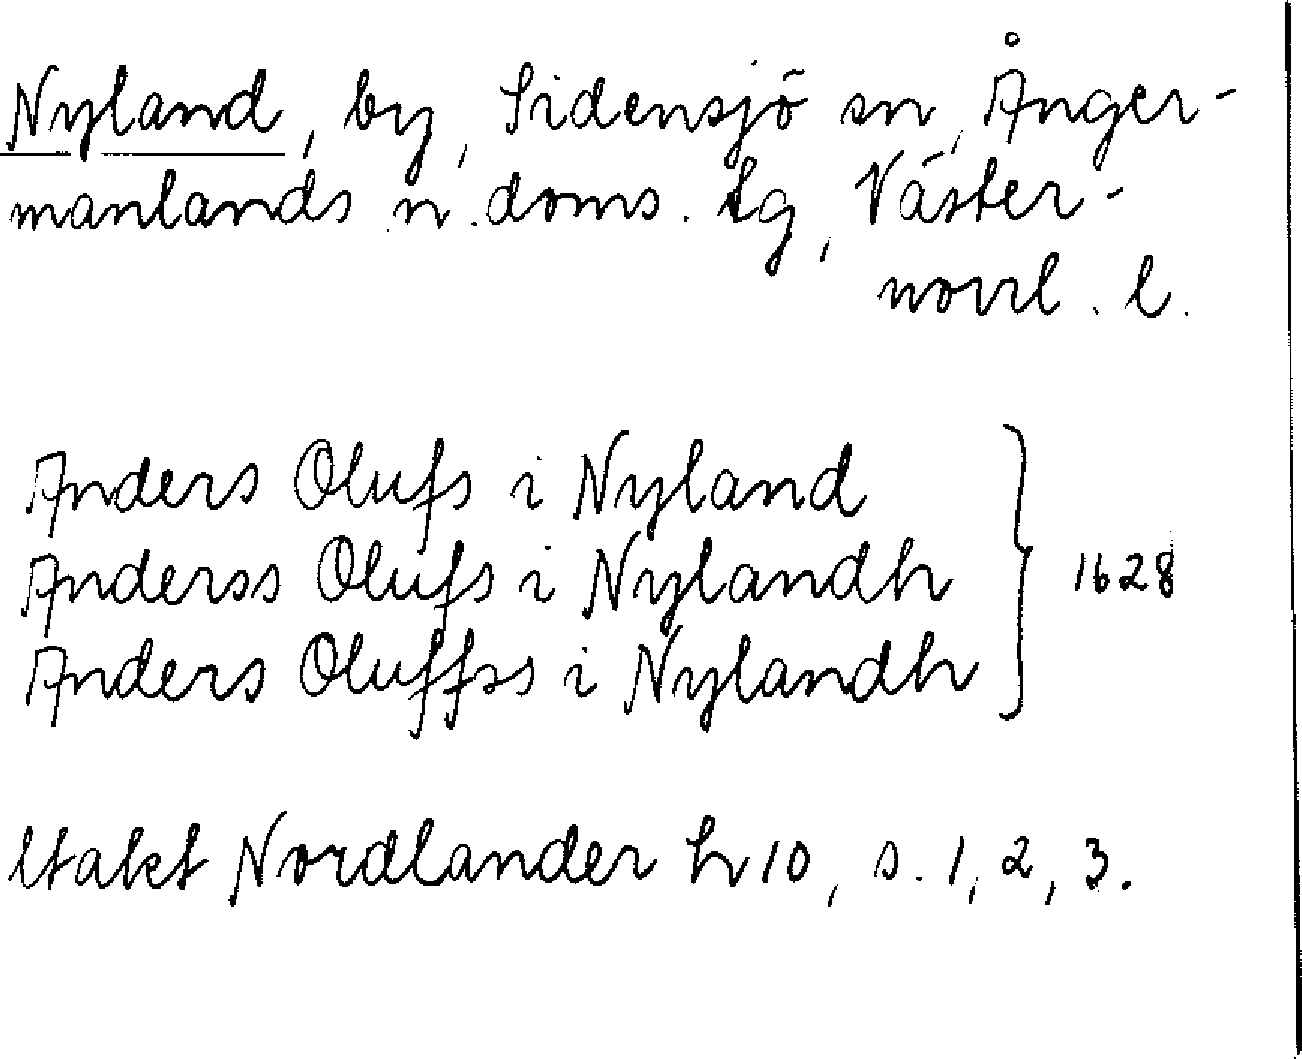 Nyland, by, Sidensjö sn, Ånger-
manlands n. doms. tg, Väster-
norrl. l.
Anders Olufs i Nyland
Anderss Olufs i Nylandh
Anders Oluffss i Nylandh
1628
Utakt Nordlander h 10, s. 1, 2, 3.